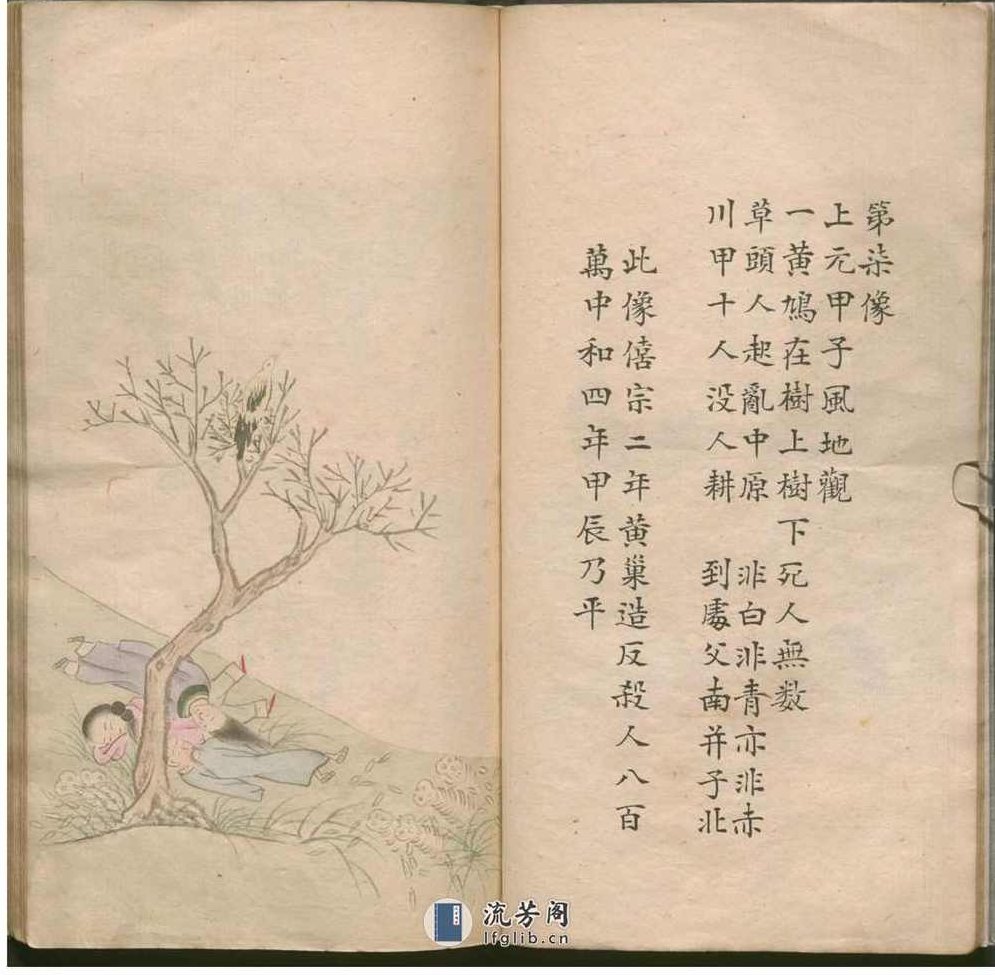 第柒像
上元甲子風地觀
一黄鳩在樹上樹下死人無数
草頭人起亂中原 非白非青亦非赤
川甲十人没人耕 到處父南并子北
此像僖宗二年黄巢造反殺人八百
萬中和四年甲辰乃平
流芳阁
lfglib.cn